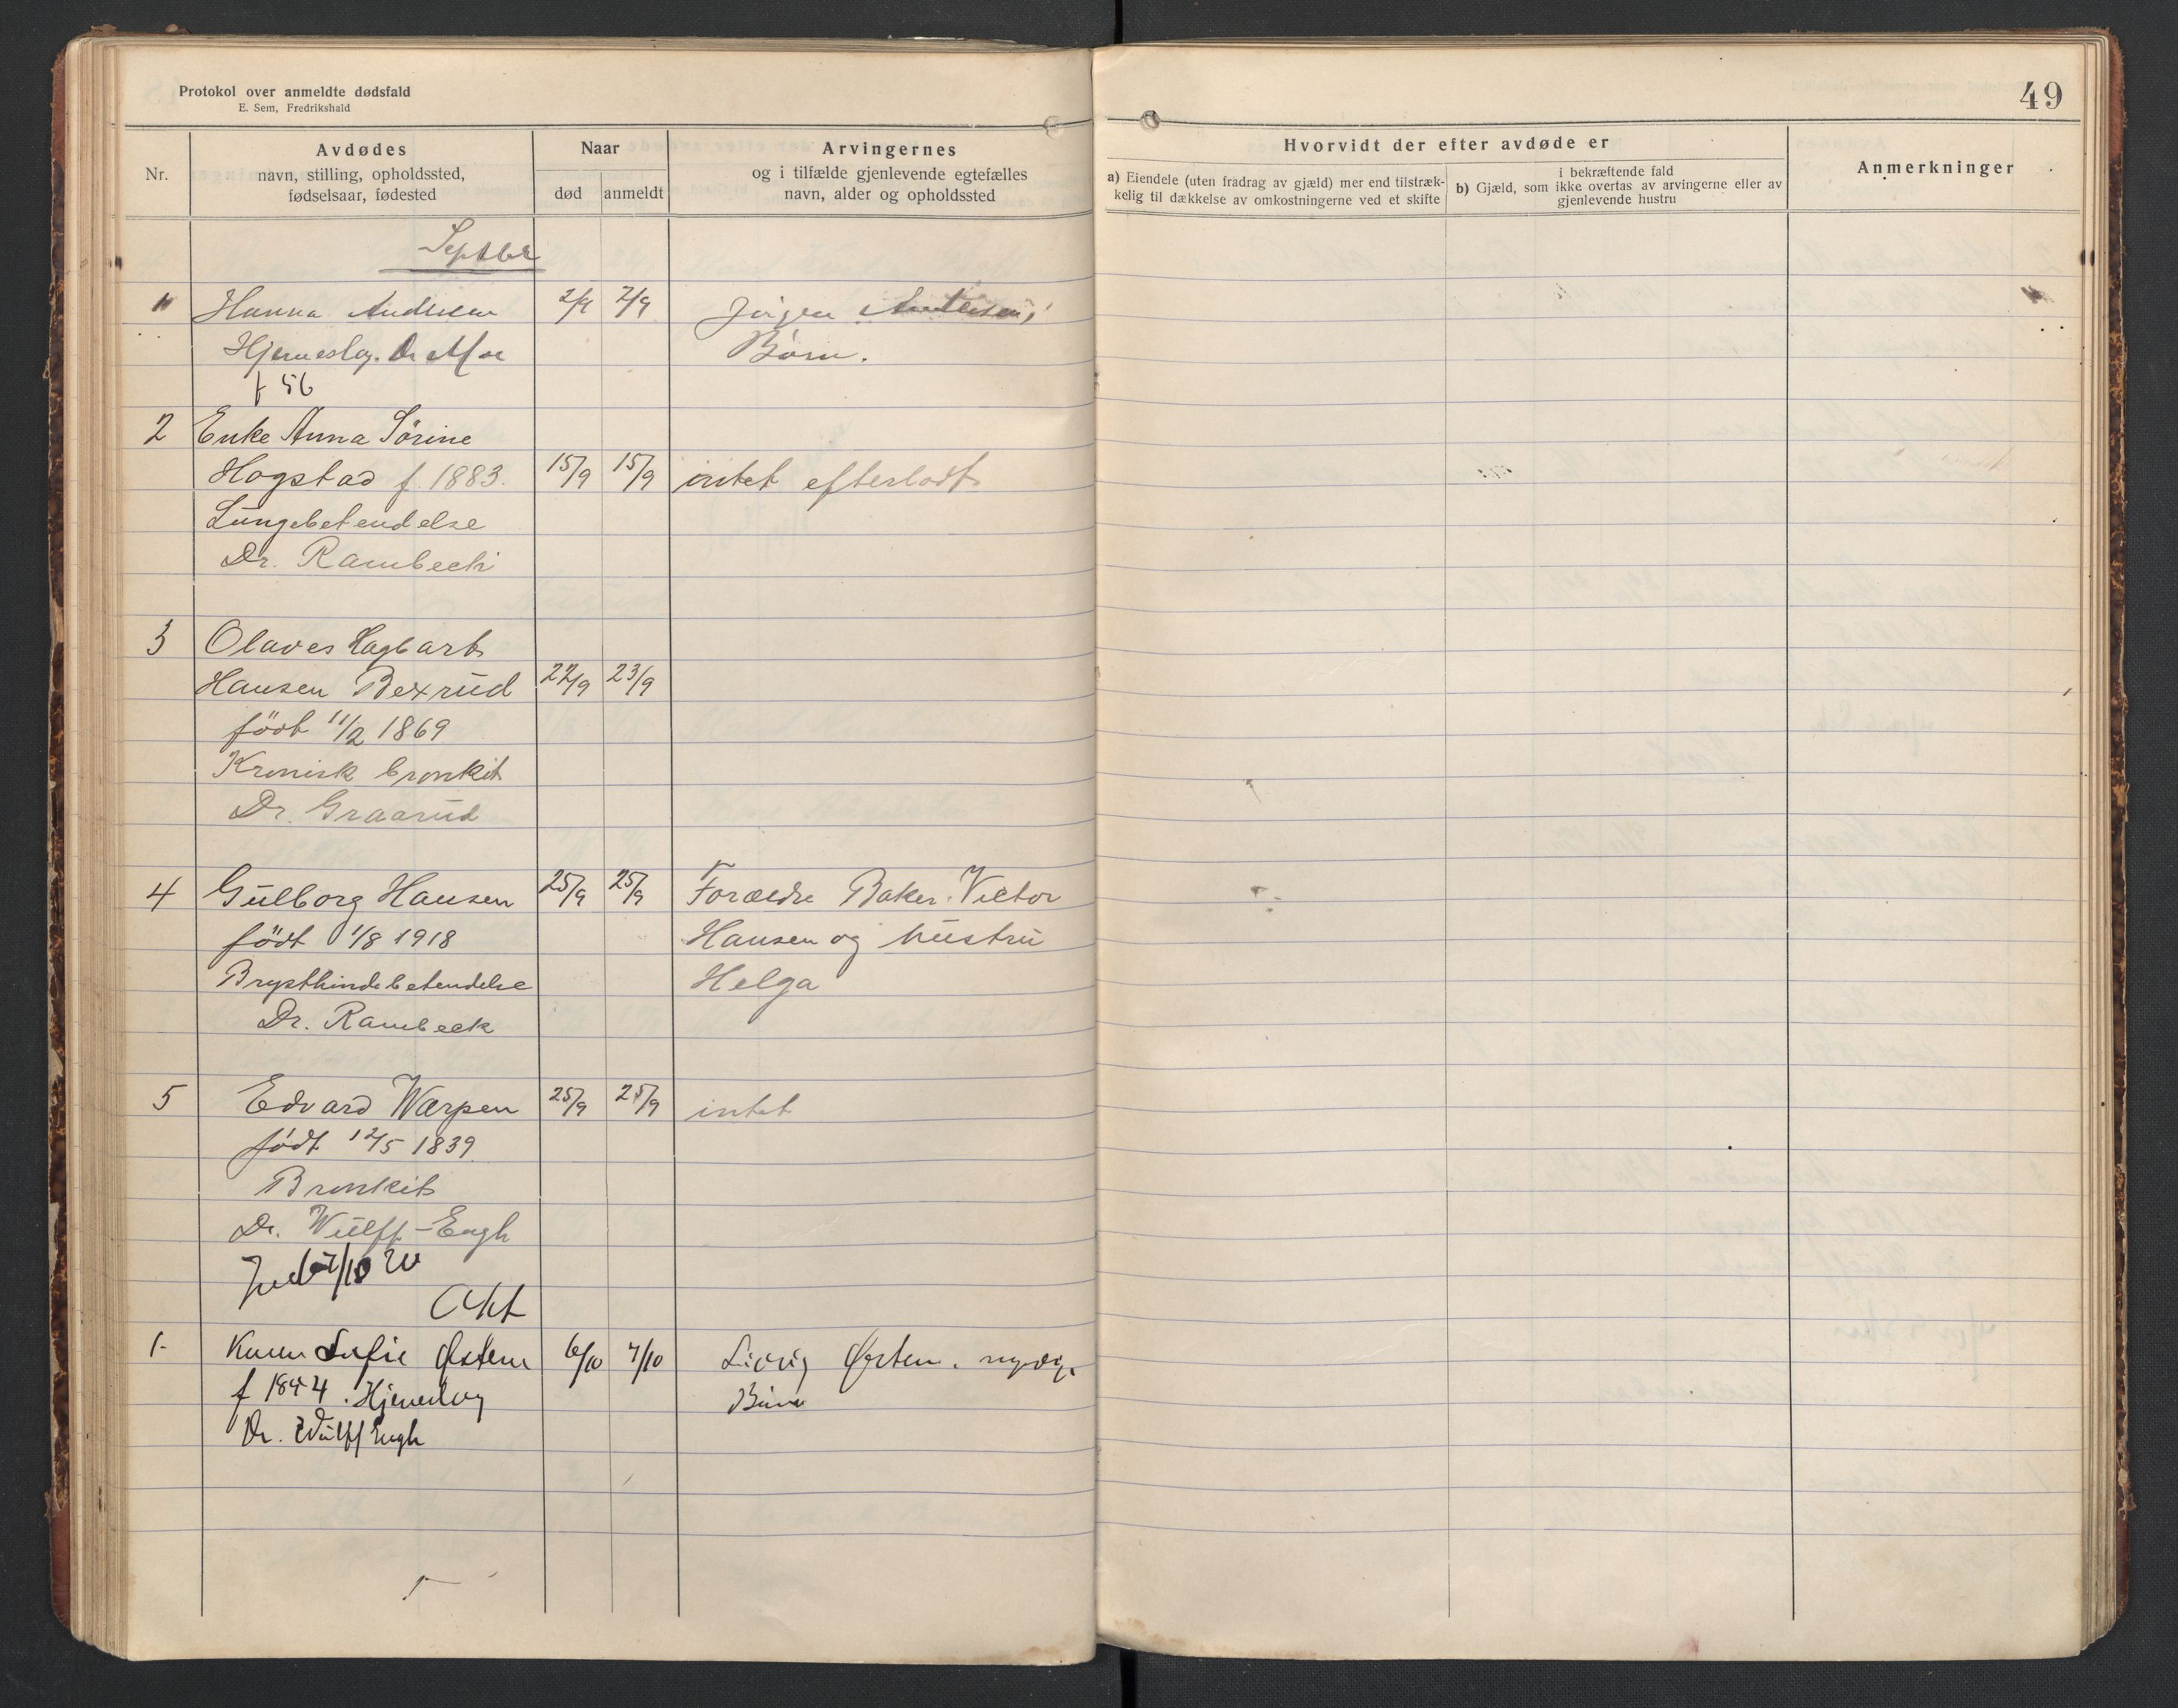 Protokol over anmeldte dødsfald
E. Sem, Fredrikshald
49
Nr.
Avdødes
navn, stilling, opholdssted,
fødselsaar, fødested
Naar
død
anmeldt
Arvingernes
og i tilfælde gjenlevende egtefælles
navn, alder og opholdssted
Hvorvidt der efter avdøde er
a) Eiendele (uten fradrag av gjæld) mer end tilstræk-
kelig til dækkelse av omkostningerne ved et skifte
i bekræftende fald
b) Gjæld, som ikke overtas av arvingerne eller av
gjenlevende hustru
Anmerkninger
Septbr
Hanna Andersen 2/9 2/9 Jörgen Andersen,
Hjerneslag. Dr Moe Börn.
f 56
2 Enke Anna Sörine
Hogstad f. 1883. 15/9 15/9 intet efterladt
Lungebetendelse
Dr. Rambeck
3 Olaves Hagbart
Hansen Bexrud 22/9 23/9
födt 11/2 1869
Kronisk bronkit
Dr. Graarud
4 Gulborg Hansen 25/9 25/9 Forældre Baker Victor
födt 1/8 1918 Hansen og hustru
Brysthindebetendelse Helga
Dr. Rambeck
5 Edvard Warpen 25/9 25/9 intet
födt 12/5 1839
Bronkit
Dr. Wulff-Engh
Okt
1- Karen Sofie Østern 6/10 7/10 Østern. myndige
f 1844. Hjerneslag Börn
Dr. Wulff Engh